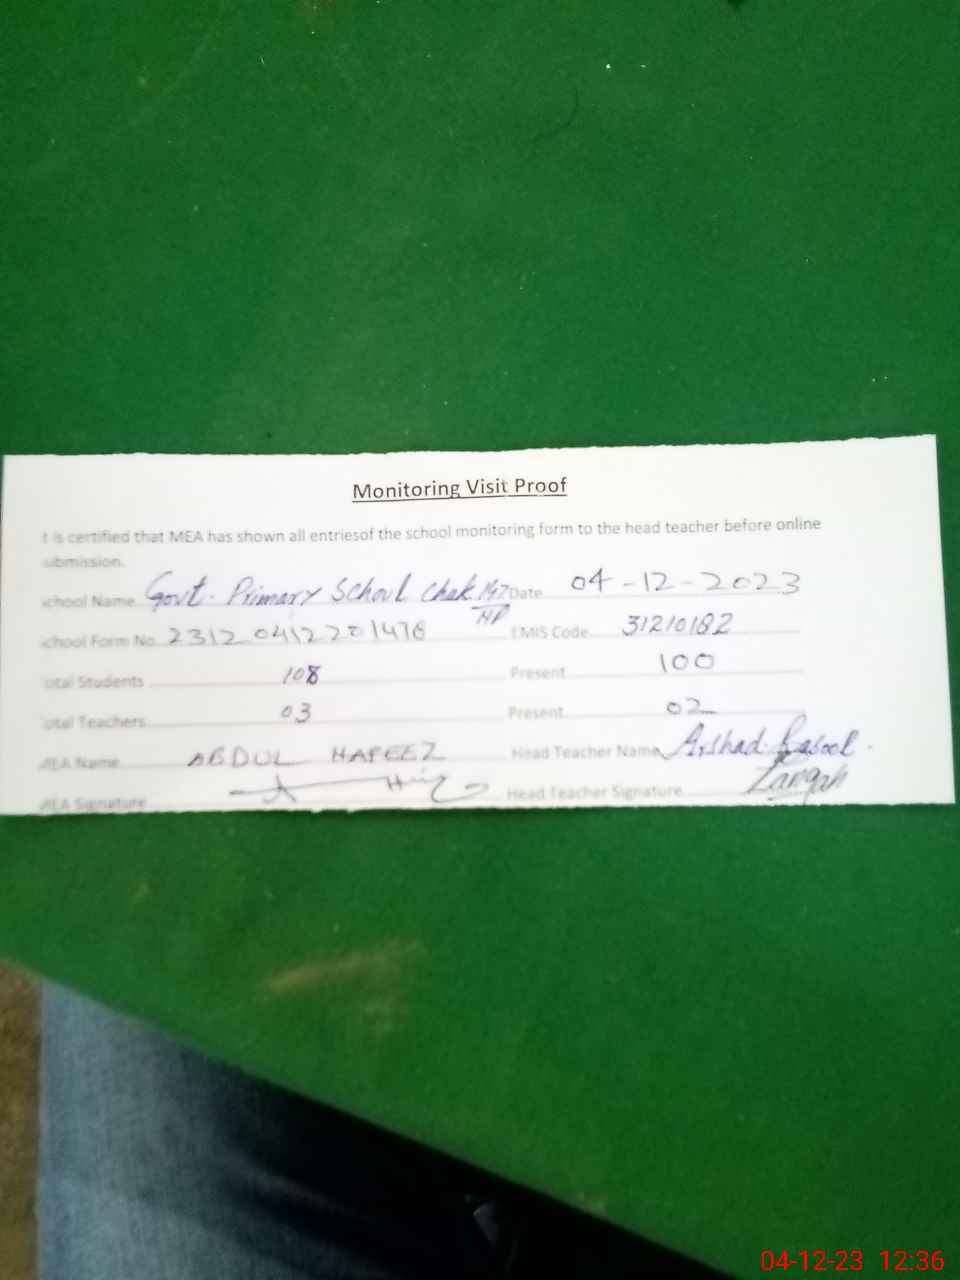 Monitoring Visit Proof
t is certified that MEA has shown all entriesof the school monitoring form to the head teacher before online
ubmission.
chool Name Govt. Primary School Chak 147/NP Date 04-12-2023
chool Form No. 23120412201478 EMIS Code 31210182
otal Students 108 Present 100
otal Teachers 03 Present 02
MEA Name ABDUL HAFEEZ Head Teacher Name Arshad Rasool.
MEA Signature Head Teacher Signature Langah
04-12-23 12:36